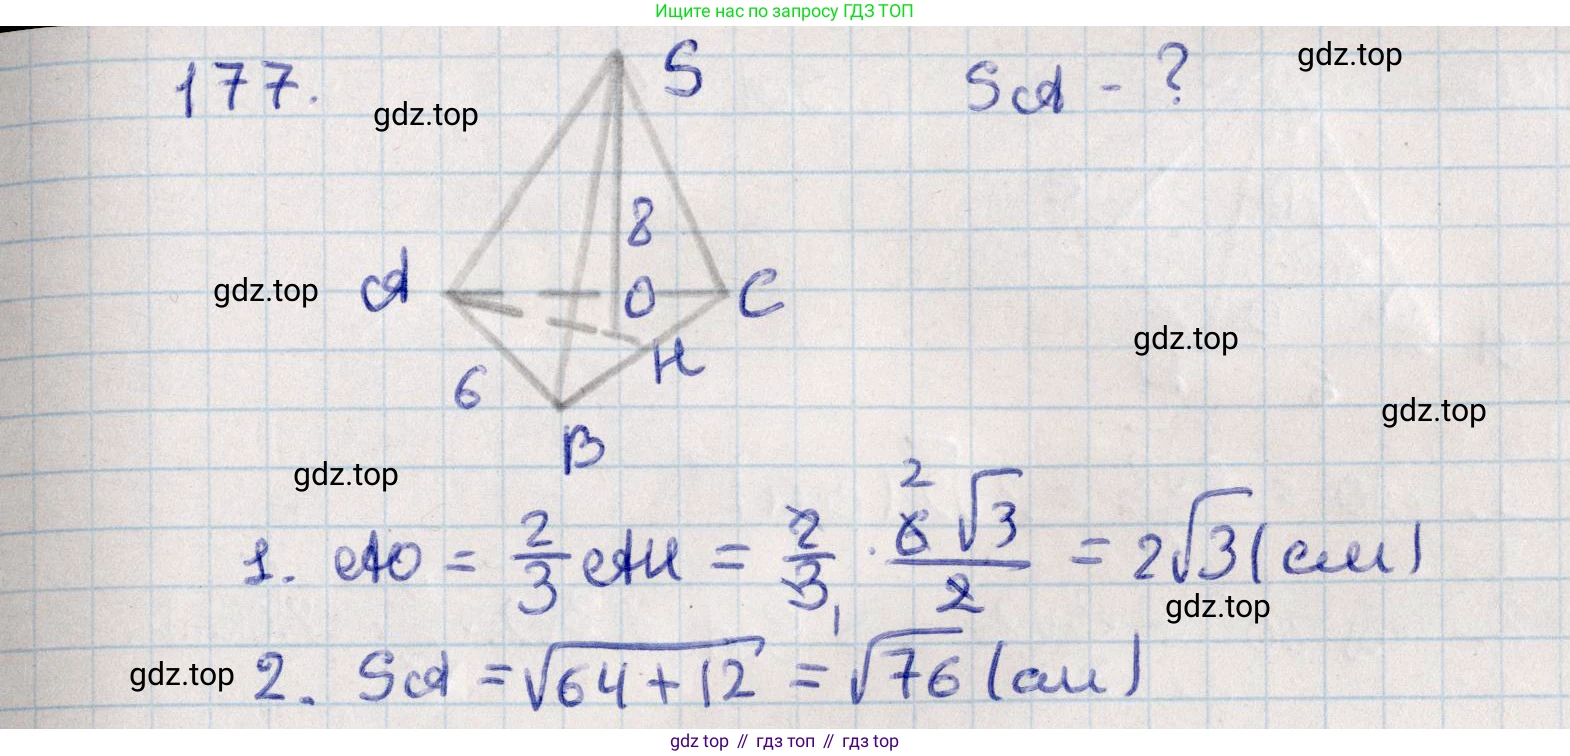 Ищите нас по запросу ГДЗ ТОП
177.
S
SA - ?
gdz.top
gdz.top
8
gdz.top
A
O
C
gdz.top
H
6
gdz.top
B
gdz.top
1. AO = 2/3 AH = 2/3 · 6√3/2 = 2√3 (см)
2
1
gdz.top
gdz.top
2. SA = √64+12 = √76 (см)
gdz top // гдз топ // гдз top